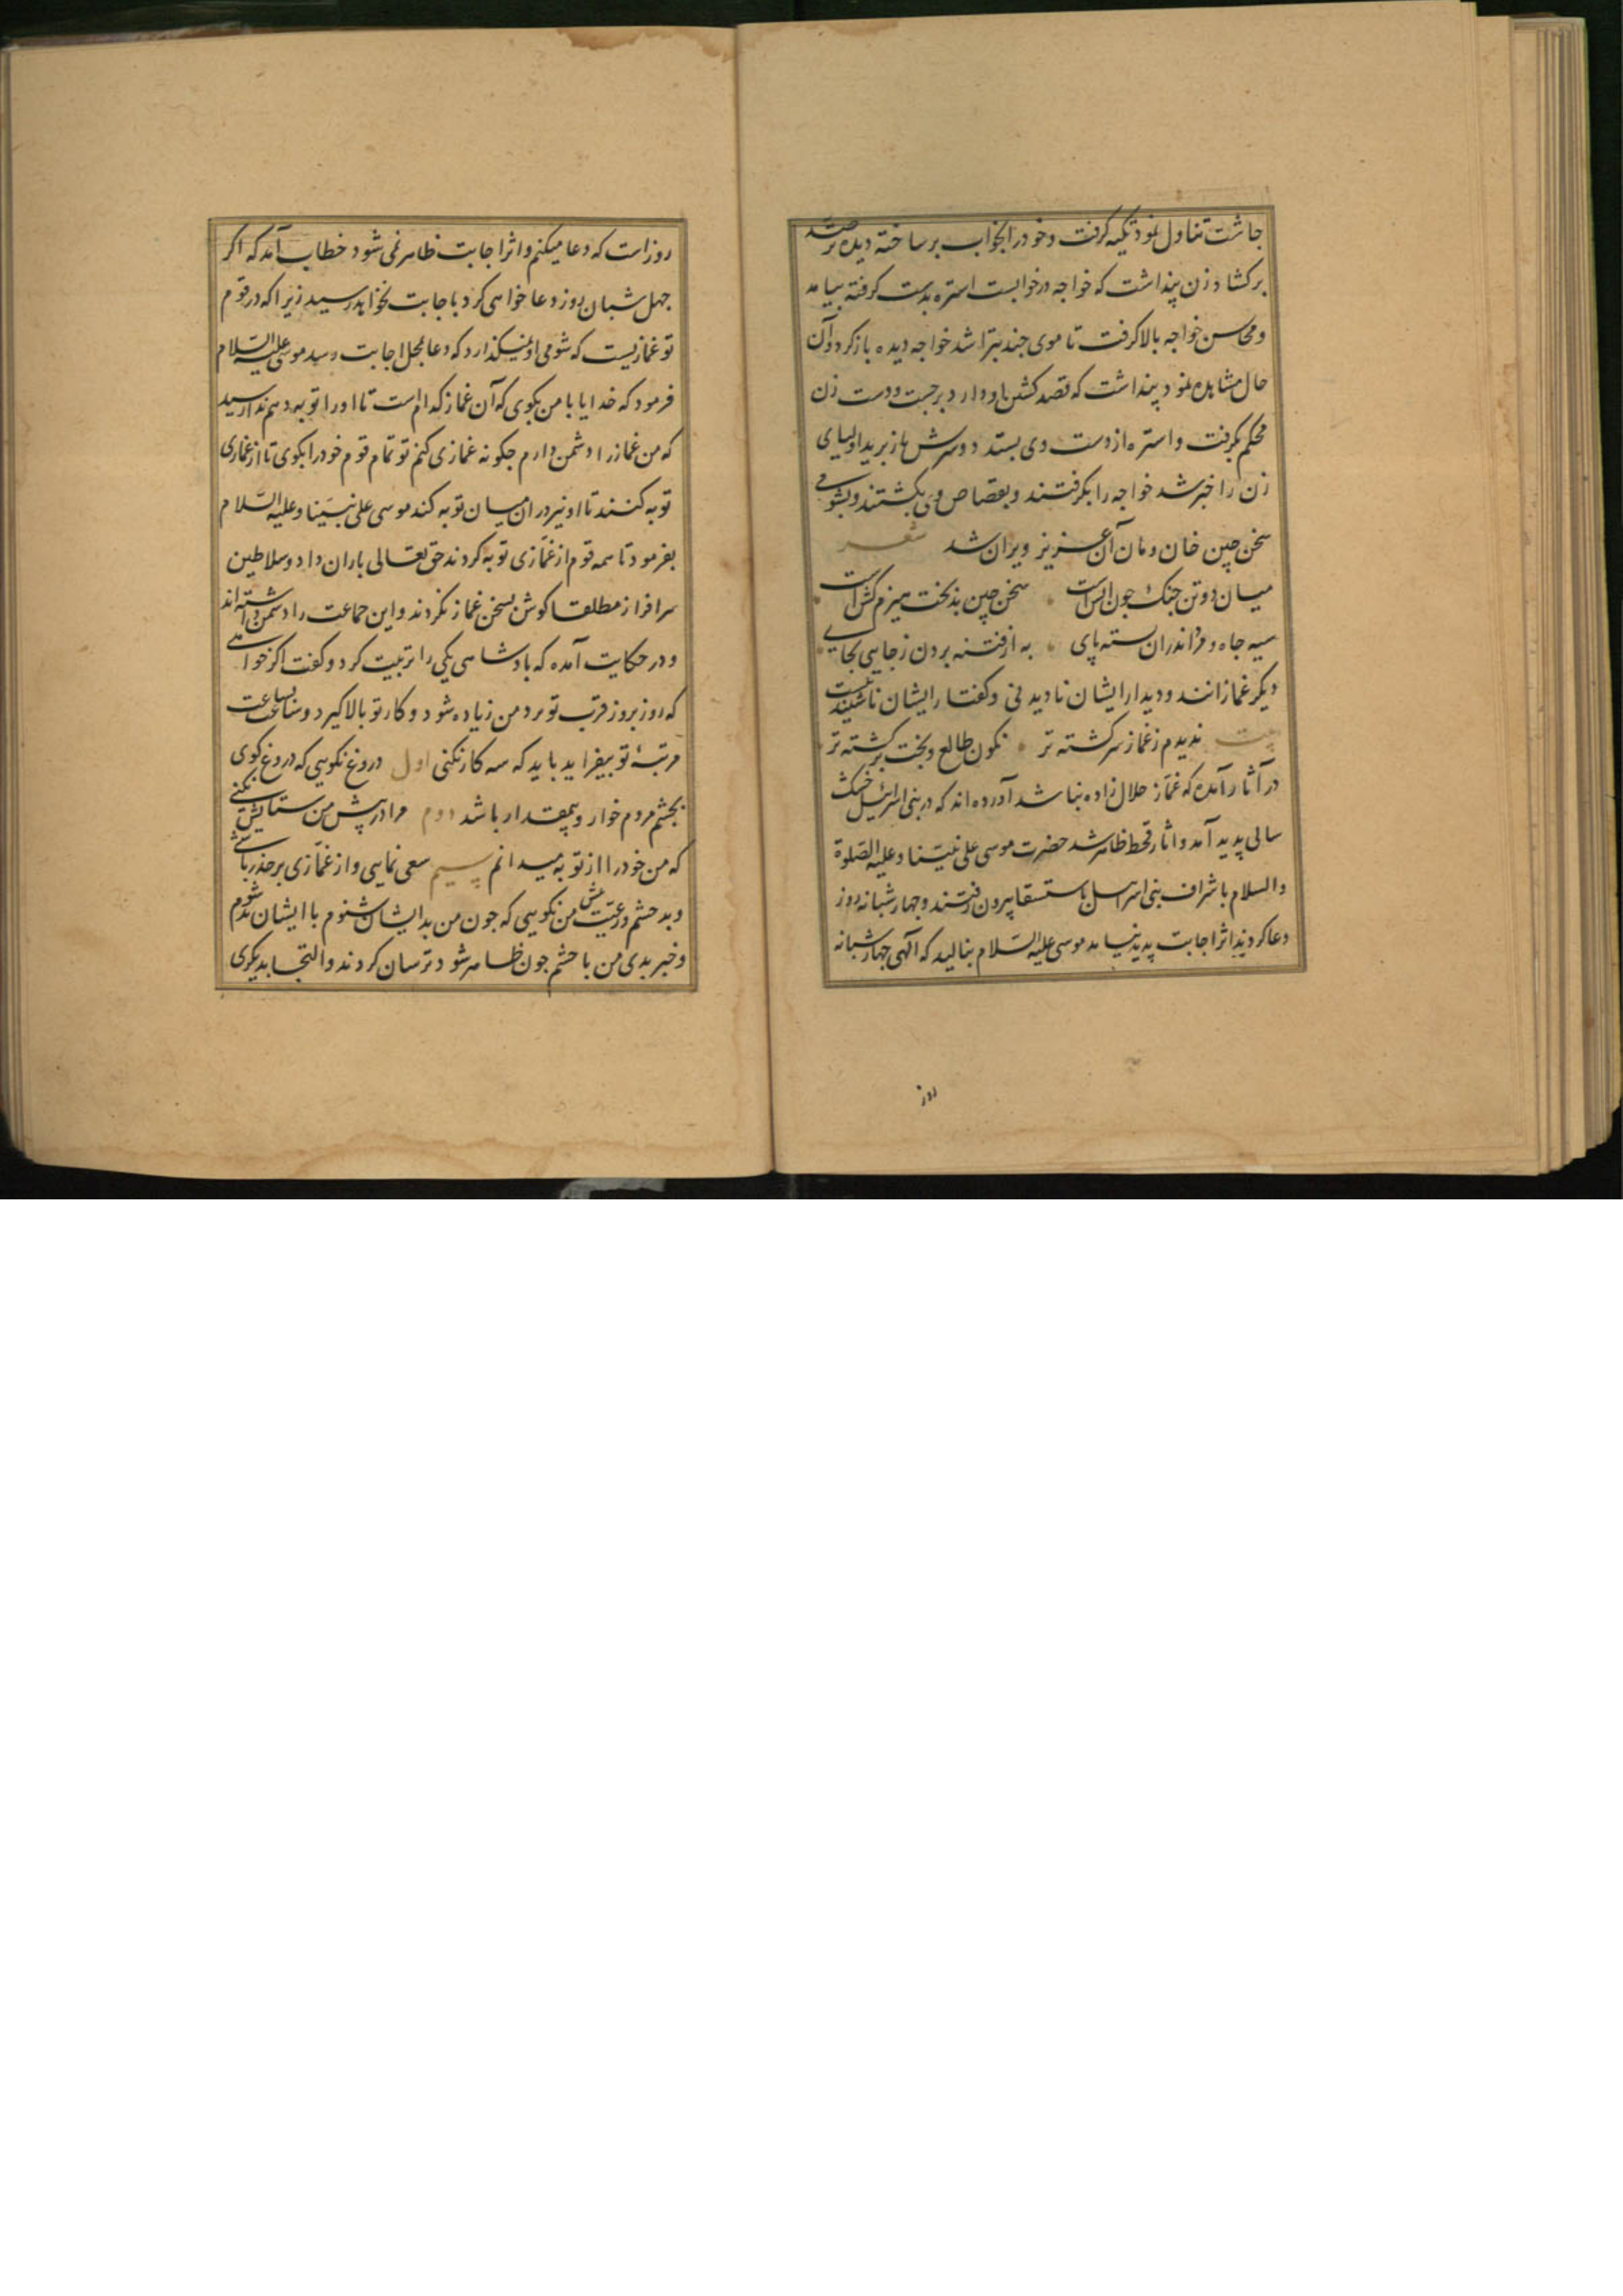 جاشت تناول نمود تکیه گرفت و خود را بخواب بر ساخته دیده بر
بر کشاد زن پنداشت که خواجه در خوابست استره بدست گرفته بیامد
و محاسن خواجه بالا گرفت تا موی چند بتراشد خواجه دیده باز کرد و آن
حال مشاهده نمود پنداشت که قصد کشتن او دارد برجست و دست زن
محکم بگرفت و استره از دست وی بستد و سرش باز برید اولیای
زن را خبر شد خواجه را بگرفتند و بقصاص وی بکشتند و بشومی
سخن چین خان و مان آن عزیز ویران شد شعر
میان دو تن جنک چون آتش است سخن چین بدبخت هیزم کش است
سیه چاه و مرد اندران بسته پای به از فتنه بردن ز جایی بجایی
دیکر غمازانند و دیدار ایشان نادیدنی و کفتار ایشان ناشنیدنیست
بیت ندیدم ز غماز سرکشته تر نکون طالع و بخت برکشته تر
در آثار آمده که غماز حلال زاده نباشد آورده اند که در بنی اسرائیل خشک
سالی پدید آمد و آثار قحط ظاهر شد حضرت موسی علی نبینا و علیه الصلوة
والسلام با اشراف بنی اسرائیل باستسقا بیرون رفتند و چهار شبانه روز
دعا کردند اثر اجابت پدید نیامد موسی علیه السلام بنالید که الهی چهار شبانه
روز
روز است که دعا میکنم و اثر اجابت ظاهر نمی شود خطاب آمد که اکر
چهل شبان روز دعا خواهی کرد باجابت نخواهد رسید زیرا که در قوم
تو غمازیست که شومی او نمیکذارد که دعا بمحل اجابت رسد موسی علیه السلام
فرمود که خدایا با من بکوی که آن غماز کدام است تا او را توبه دهم ندا رسید
که من غماز را دشمن دارم چکونه غمازی کنم تو تمام قوم خود را بکوی تا از غمازی
توبه کنند تا او نیز در ان میان توبه کند موسی علی نبینا و علیه السلام
بفرمود تا همه قوم از غمازی توبه کردند حق تعالی باران داد و سلاطین
سرافراز مطلقا کوش بسخن غماز نکردند و این جماعت را دشمن داشته اند
و در حکایت آمده که بادشاهی یکی را تربیت کرد و کفت اکر خواهی
که روز بروز قربت تو نزد من زیاده شود و کار تو بالا کیرد و ساعت بساعت
مرتبهٔ تو بیفزاید باید که سه کار نکنی اول دروغ نکویی که دروغ کوی
بچشم مردم خوار و بیمقدار باشد دوم مرا در پیش من ستایش نکنی
که من خود را از تو به میدانم سیم سعی نمایی و از غمازی بر حذر باشی
و بد حشم و رعیت پیش من نکویی که چون من بد ایشان شنوم با ایشان بد شوم
و خبر بدی من با حشم چون ظاهر شود ترسان کردند و التجا بدیکری